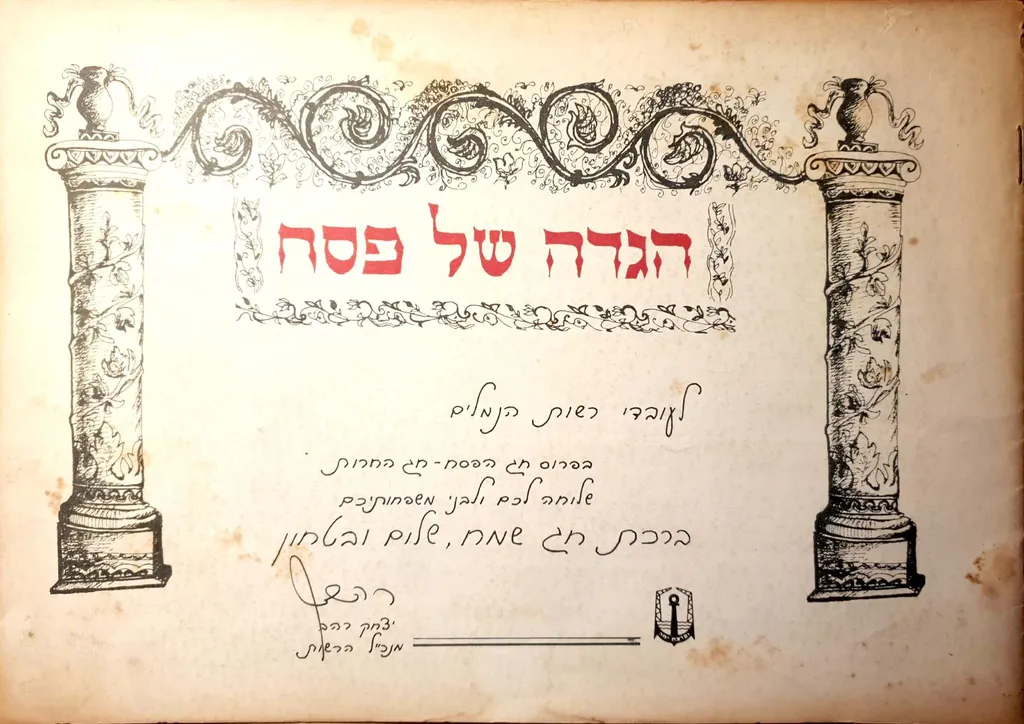 הגדה של פסח
לעובדי רשות הנמלים
בפרוס חג הפסח-חג החרות
שלוחה לכם ולבני משפחותיכם
ברכת חג שמח, שלום ובטחון
יצחק רהב
מנכ״ל הרשות